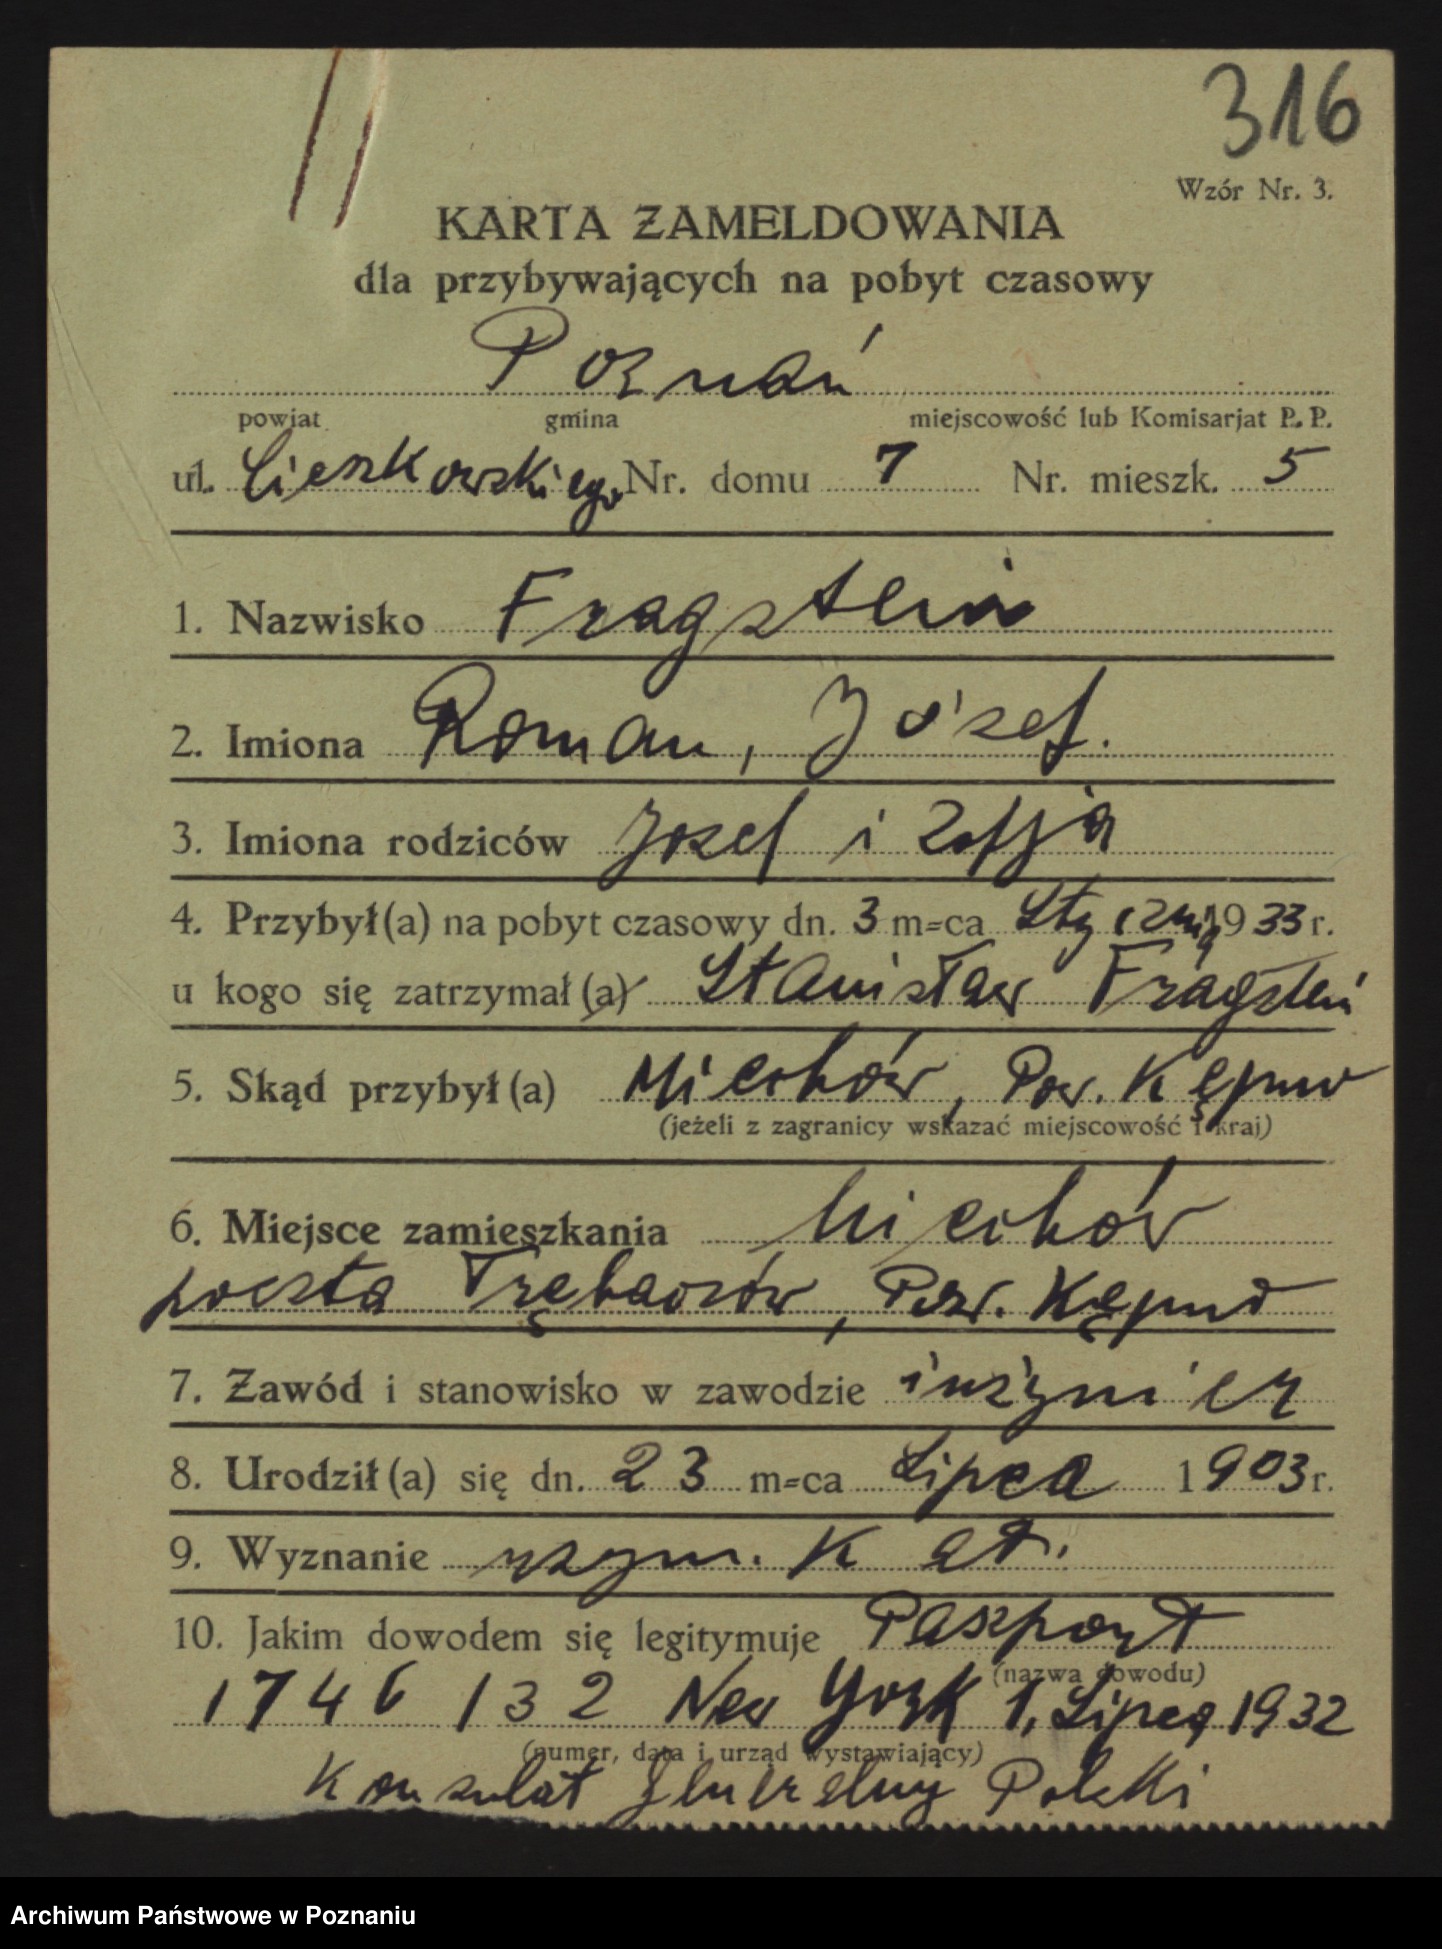 316
Wzór Nr. 3.
KARTA ZAMELDOWANIA
dla przybywających na pobyt czasowy
Poznań
powiat gmina miejscowość lub Komisarjat P. P.
ul. Cieszkowskiego Nr. domu 7 Nr. mieszk. 5
1. Nazwisko Fragstein
2. Imiona Roman, Józef.
3. Imiona rodziców Jozef i Zofja
4. Przybył(a) na pobyt czasowy dn. 3 m=ca Stycznia 1933 r.
u kogo się zatrzymał(a) Stanisław Fragstein
5. Skąd przybył(a) Miechów, Pow. Kępno
(jeżeli z zagranicy wskazać miejscowość i kraj)
6. Miejsce zamieszkania Miechów
poczta Trębaczów, Pow. Kępno
7. Zawód i stanowisko w zawodzie inżynier
8. Urodził(a) się dn. 23 m=ca Lipca 1903 r.
9. Wyznanie rzym. kat.
10. Jakim dowodem się legitymuje Paszport
(nazwa dowodu)
1746/32 New York 1, Lipca, 1932
(numer, data i urząd wystawiający)
Konsulat Generalny Polski
Archiwum Państwowe w Poznaniu